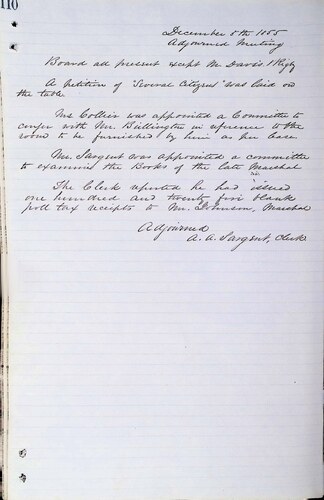 110
December 5th 1855
Adjourned Meeting
Board all present except Mr Davis & Rigby
A petition of "Several Citizens" was laid on
the table
Mr Collier was appointed a Committee to
confer with Mr. Billington in reference to the
room to be furnished by him as per lease
Mr. Sargent was appointed a committee
to examine the Books of the late Marshal
The Clerk reported he had issued
one hundred and twenty five blank
poll tax receipts to Mr. Johnson, Marshal
Adjourned
A. A. Sargent, Clerk